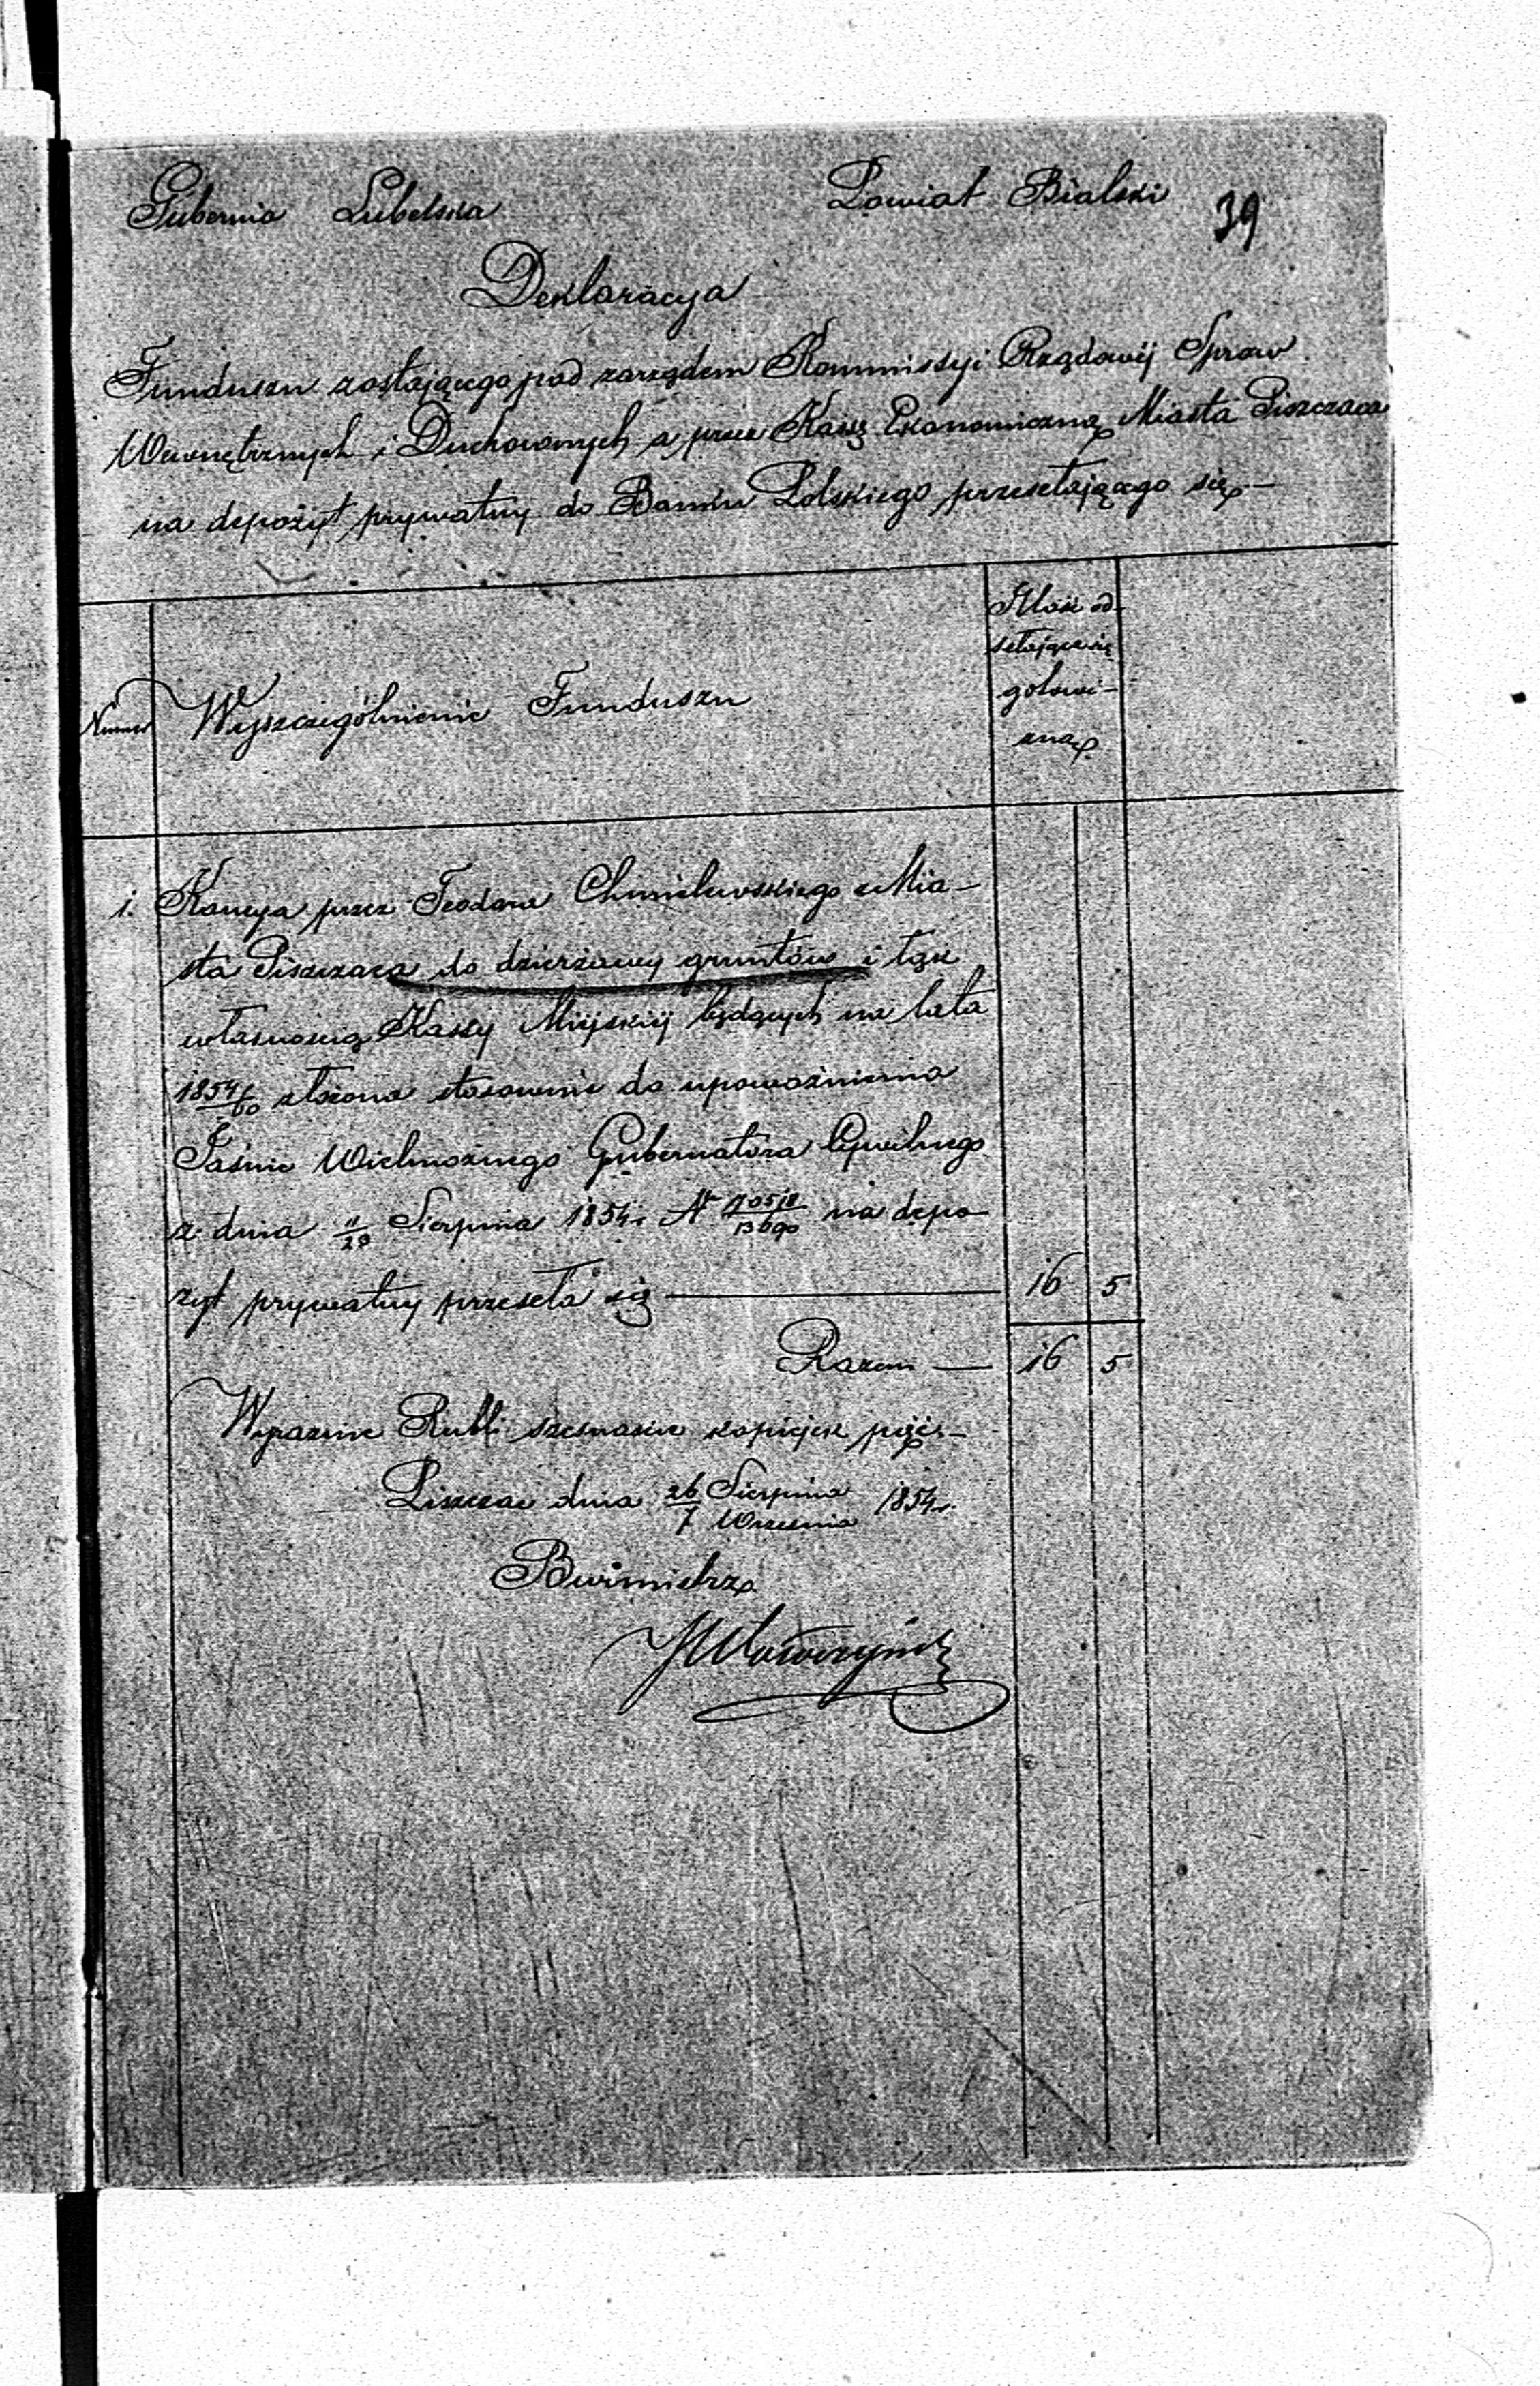 Gubernia Lubelska Powiat Bialski 39
Deklaracya
Funduszu zostającego pod zarządem Kommissyi Rządowéj Spraw
Wewnętrznych i Duchownych a przez Kassę Ekonomiczną Miasta Piszczaca
na depozyt prywatny do Banku Polskiego przesełającego się –
Numer
Wyszczególnienie Funduszu
Ilość od-
sełająca się
gotowi-
zną
1. Kaucya przez Teodora Chmielewskiego z Mia-
sta Piszczaca do dzierżawy gruntów i łąk
własnością Kassy Miejskiéj będących na lata
1854/60 złożona stosownie do upoważnienia
Jaśnie Wielmożnego Gubernatora Cywilnego
z dnia 11/23 Sierpnia 1854 r. N na depo-
zyt prywatny przeseła się — 16 5
Razem — 16 5
Wyraźnie Rubli szesnaście kopiejek pięć –
Piszczac dnia 26 Sierpnia / 7 Września 1854 r.
Burmistrz